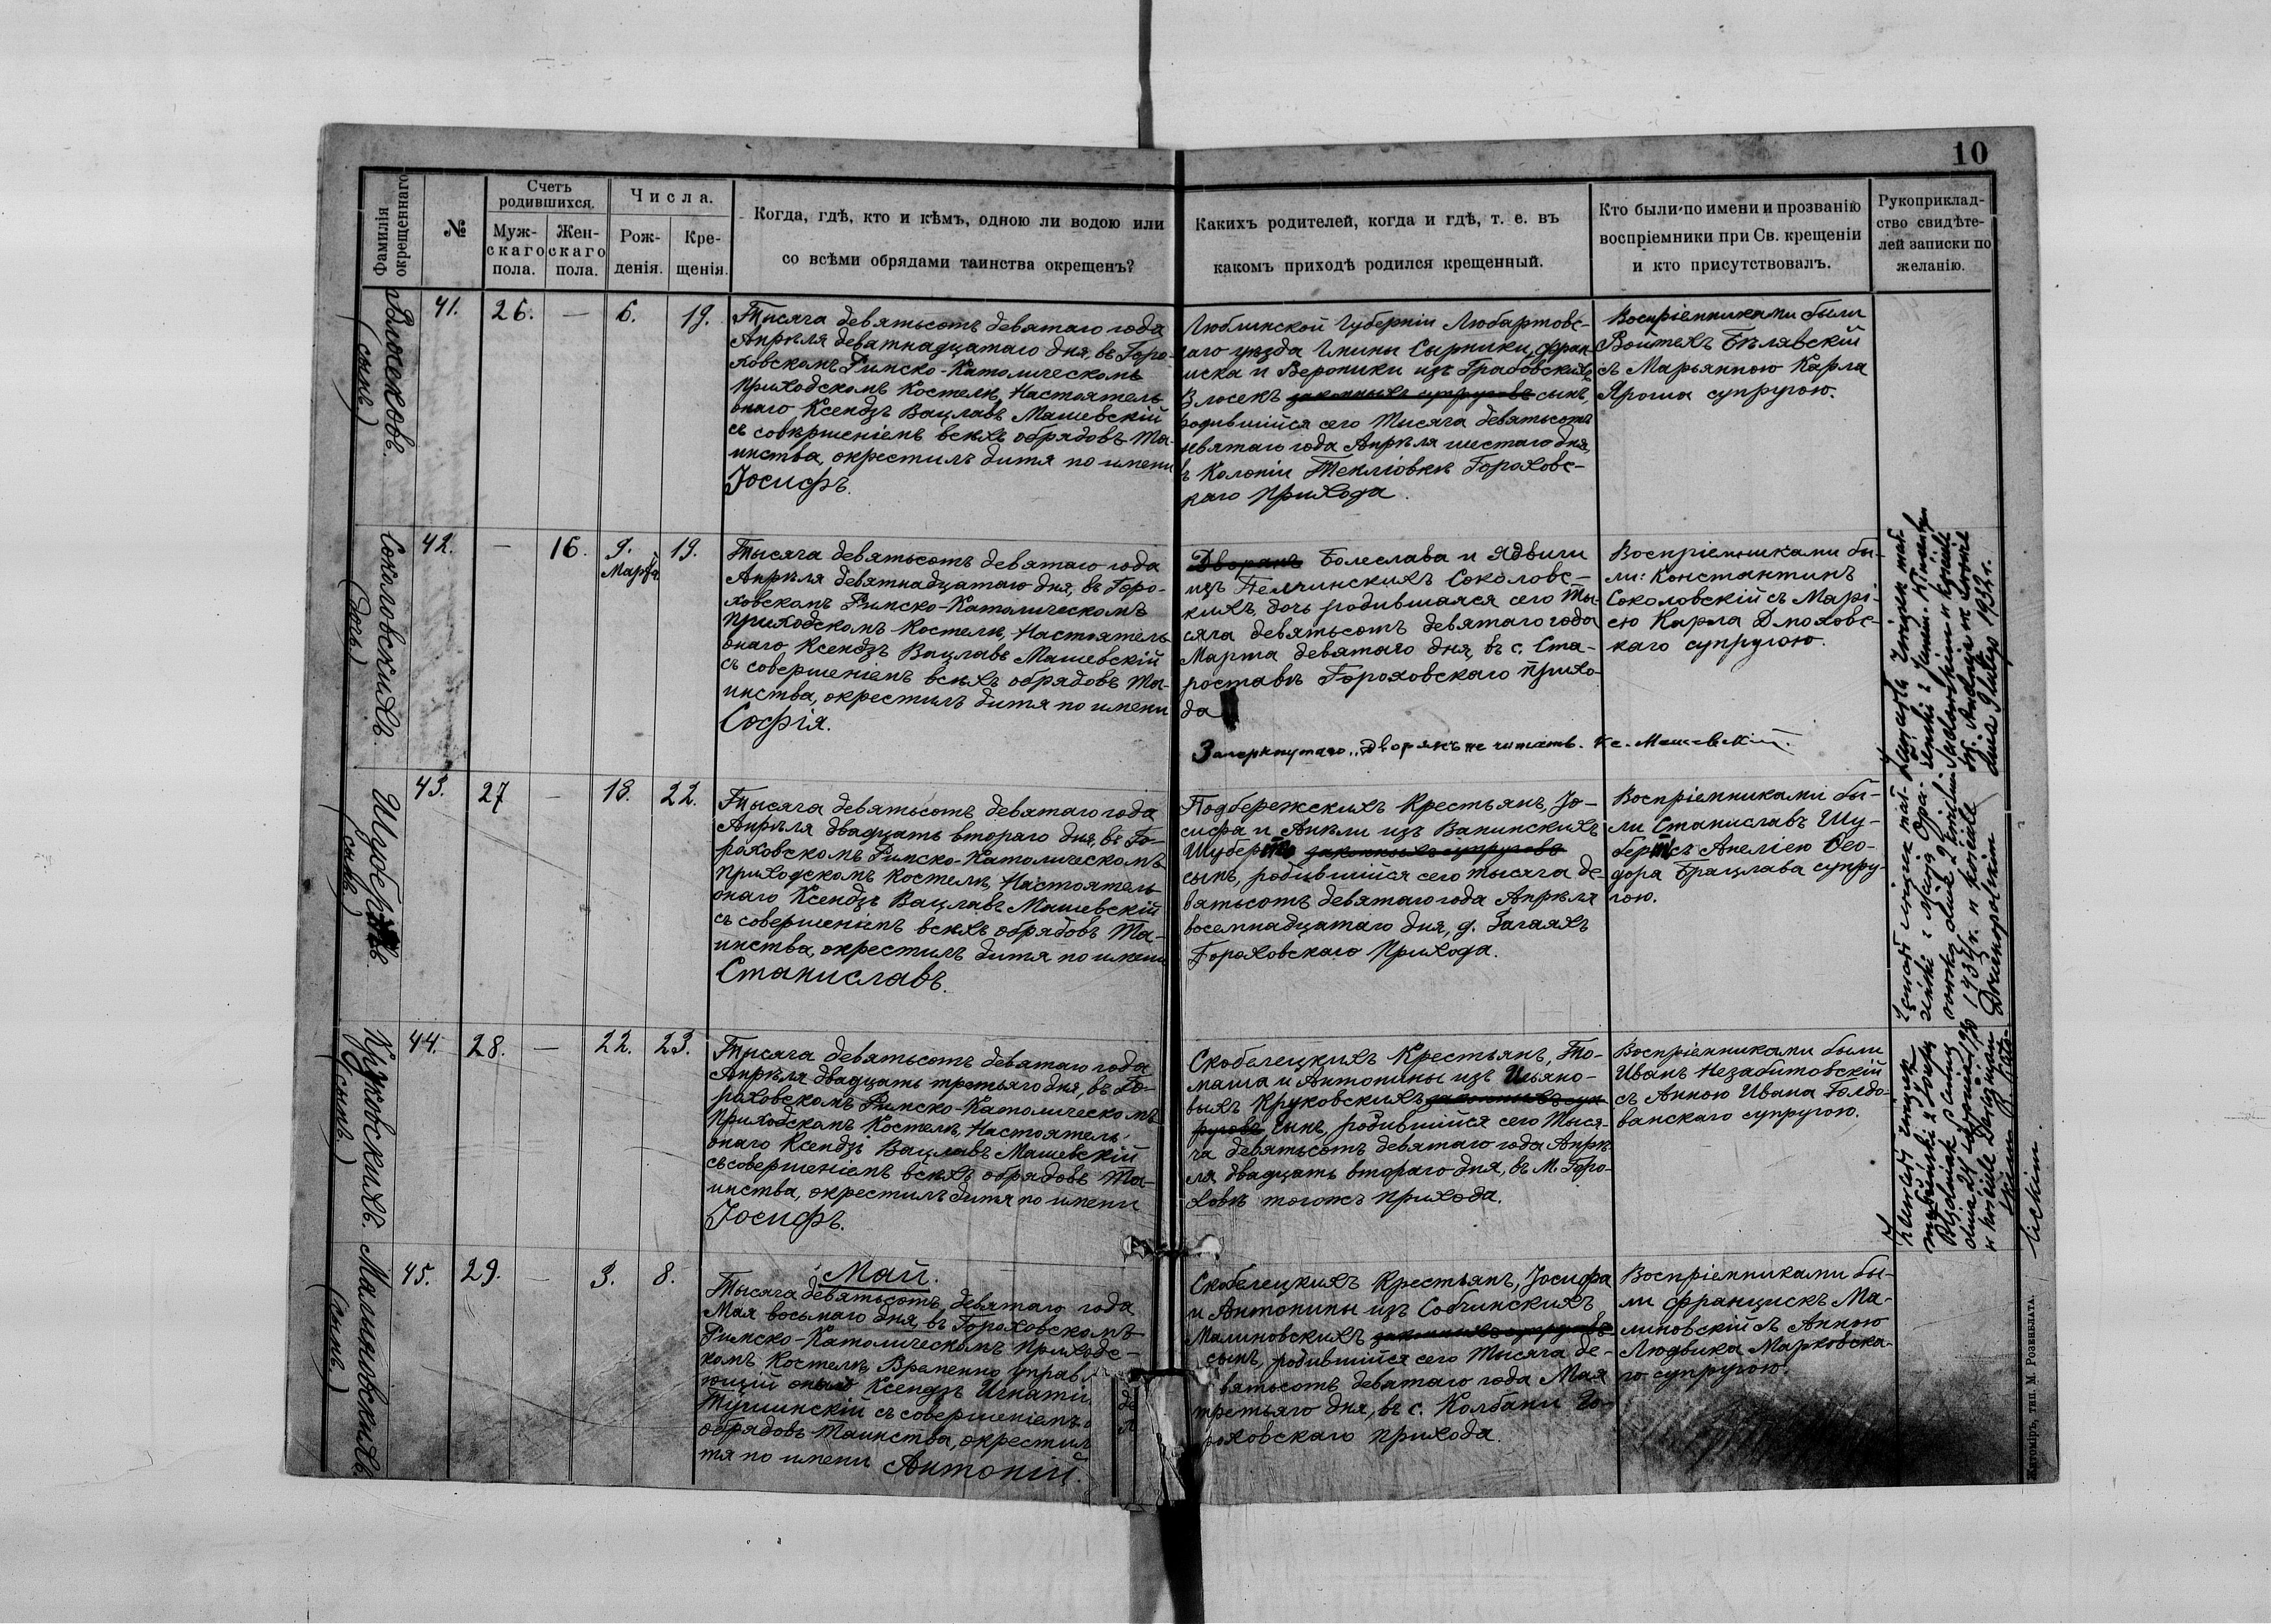 10
Фамилія окрещеннаго
№
Счетъ родившихся.
Муж-
скаго
пола.
Жен-
скаго
пола.
Числа.
Рож-
денія.
Кре-
щенія.
Когда, гдѣ, кто и кѣмъ, одною ли водою или
со всѣми обрядами таинства окрещенъ?
Какихъ родителей, когда и гдѣ, т. е. въ
какомъ приходѣ родился крещенный.
Кто были по имени и прозванію
воспріемники при Св. крещеніи
и кто присутствовалъ.
Рукоприклад-
ство свидѣте-
лей записки по
желанію.
(сынъ)
41.
26.
—
6.
19.
Тысяча девятьсотъ девятаго года
Апрѣля девятнадцатаго дня, въ Горо-
ховскомъ Римско-Католическомъ
приходскомъ Костелѣ, Настоятель
онаго Ксендзъ Вацлавъ Машевскій
съ совершеніемъ всѣхъ обрядовъ Та-
инства, окрестилъ дитя по имени
Іосифъ.
Люблинской Губерніи Любартовс-
каго уѣзда Гмины Сырники, Фран-
циска и Вероники изъ Грабовскихъ
Влосекъ законныхъ супруговъ сынъ,
родившійся сего Тысяча девятьсотъ
девятаго года Апрѣля шестаго дня,
въ Колоніи Теклювкѣ Гороховс-
каго прихода.
Воспріемниками были
Войтехъ Бѣлявскій
съ Марьянною Карла
Яроша супругою.
Соколовскихъ.
(дочь)
42.
—
16.
9.
Марта
19.
Тысяча девятьсотъ девятаго года
Апрѣля девятнадцатаго дня, въ Горо-
ховскомъ Римско-Католическомъ
приходскомъ Костелѣ, Настоятель
онаго Ксендзъ Вацлавъ Машевскій
съ совершеніемъ всѣхъ обрядовъ Та-
инства, окрестилъ дитя по имени
Софія.
Дворянъ Болеслава и Ядвиги
изъ Пелчинскихъ Соколовс-
кихъ, дочь родившаяся сего Ты-
сяча девятьсотъ девятаго года
Марта девятаго дня, въ с. Ста-
роставѣ Гороховскаго прихо-
да
Зачеркнутаго „Дворянъ не читать. Кс. Машевскій.
Воспріемниками бы-
ли: Константинъ
Соколовскій съ Марі-
ею Карла Дмоховс-
каго супругою.
Шубертъ
(сынъ)
43.
27
—
18.
22.
Тысяча девятьсотъ девятаго года
Апрѣля двадцать втораго дня, въ Го-
роховскомъ Римско-Католическомъ
приходскомъ костелѣ, Настоятель
онаго Ксендзъ Вацлавъ Машевскій
съ совершеніемъ всѣхъ обрядовъ Та-
инства, окрестилъ дитя по имени
Станиславъ.
Подбережскихъ Крестьянъ, Іо-
сифа и Анѣли изъ Вапинскихъ
Шубертъ законныхъ супруговъ
сынъ, родившійся сего тысяча де-
вятьсотъ девятаго года Апрѣля
восемнадцатаго дня, д. Загаяхъ
Гороховскаго прихода.
Воспріемниками бы-
ли Станиславъ Шу-
бертъ съ Анеліею Ѳео-
дора Брацлава супру-
гою.
Круковскихъ.
(сынъ)
44.
28.
—
22.
23.
Тысяча девятьсотъ девятаго года
Апрѣля двадцать третьяго дня, въ Го-
роховскомъ Римско-Католическомъ
приходскомъ Костелѣ, Настоятель
онаго Ксендзъ Вацлавъ Машевскій
съ совершеніемъ всѣхъ обрядовъ Та-
инства, окрестилъ дитя по имени
Іосифъ.
Скобелецкихъ Крестьянъ, То-
маша и Антонины изъ Ильяно-
выхъ Круковскихъ законныхъ суп-
руговъ сынъ, родившійся сего Тыся-
ча девятьсотъ девятаго года Апрѣ-
ля двадцать втораго дня, въ М. Горо-
ховѣ тогожъ прихода.
Воспріемниками были
Иванъ Незабитовскій
съ Анною Ивана Голдо-
ванскаго супругою.
Малиновскихъ
(сынъ)
45.
29.
—
3.
8.
Май.
Тысяча девятьсотъ девятаго года
Мая восьмаго дня, въ Гороховскомъ
Римско-Католическомъ приходс-
комъ Костелѣ, Временно управ
ющій онымъ Ксендзъ Игнатій
съ совершеніемъ
обрядовъ Таинства, окрестил
тя по имени Антоній.
Скобелецкихъ Крестьянъ, Іосифа
и Антонины изъ Собчинскихъ
Малиновскихъ законныхъ супруговъ
сынъ, родившійся сего Тысяча де-
вятьсотъ девятаго года Мая
третьяго дня, въ с. Колбани Го-
роховскаго прихода.
Воспріемниками бы-
ли Францискъ Ма-
линовскій съ Анною
Людвика Марковска-
го супругою.
dnia 9 lutego 1932 r.
Житоміръ, тип. М. Розенблата.